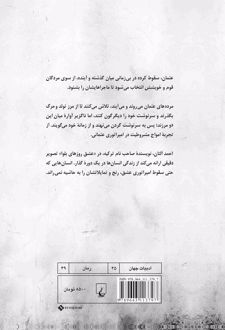 عثمان، سقوط کرده در بی‌زمانی میان گذشته و آینده، از سوی مردگان
قوم و خویشش انتخاب می‌شود تا ماجراهایشان را بشنود.
مرده‌های عثمان می‌روند و می‌آیند، تلاش می‌کنند تا از مرز تولد و مرگ
بگذرند و سرنوشت خود را دیگرگون کنند، اما ناگزیر آوارهٔ میان این
دو مرزند؛ پس به سرنوشت گردن می‌نهند و از زمانهٔ خود می‌گویند، از
تجربهٔ امواج مشروطیت در امپراتوری عثمانی.
احمد آلتان، نویسندهٔ صاحب نام ترکیه، در «عشق روزهای بلوا» تصویر
دقیقی ارائه می‌کند از زندگی انسان‌ها در یک دورهٔ گذار. انسان‌هایی که
حتی سقوط امپراتوری عشق، رنج و تمایلاتشان را به حاشیه نمی‌راند.
ادبیات جهان ۴۵ رمان ۳۹
۸۵۰۰ تومان